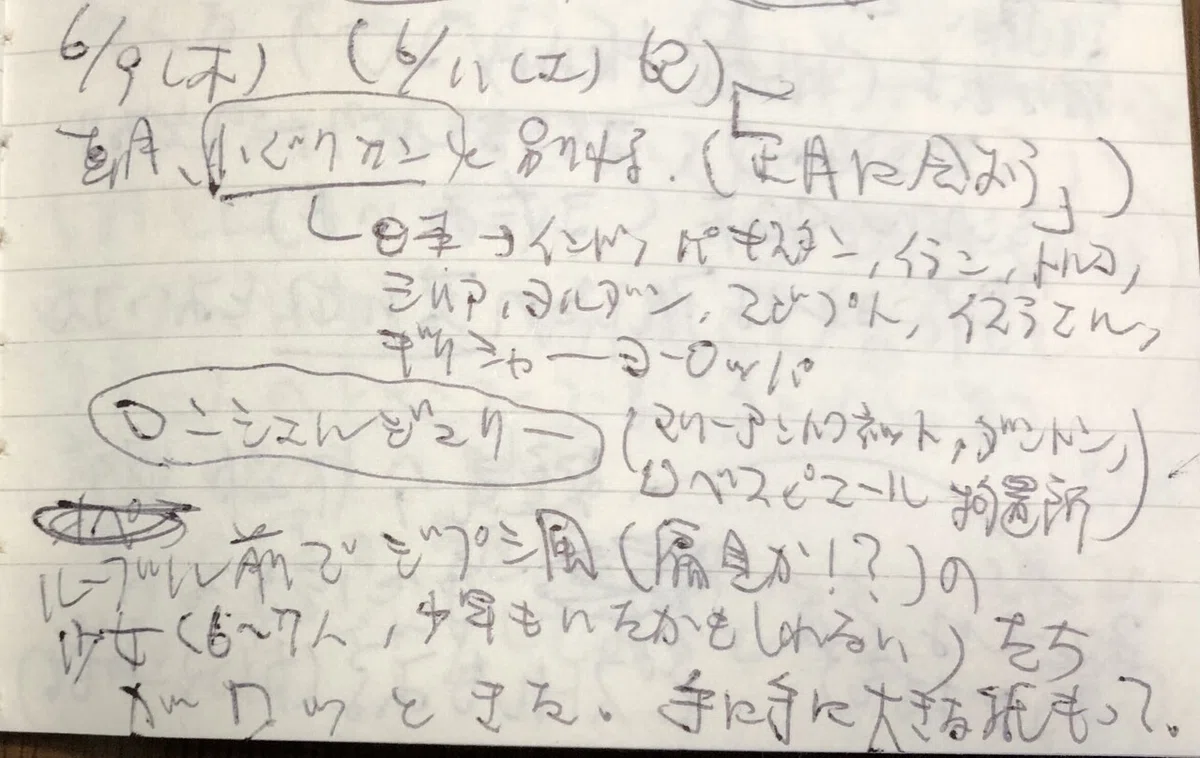 6/9(木) (6/11(土)記)
と別れる.(「正月に会おう」)
日本→インド,パキスタン,イラン,トルコ,
シリア,ヨルダン,エジプト,イスラエル,
ギリシャーヨーロッパ
コンシェルジェリー(マリーアントワネット,ダントン,
ロベスピエール 拘置所)
ルーブル前でジプシ風(偏見か!?)の
少女(6~7人,少年もいたかもしれない)たち
ときた。手に手に大きな紙もって。